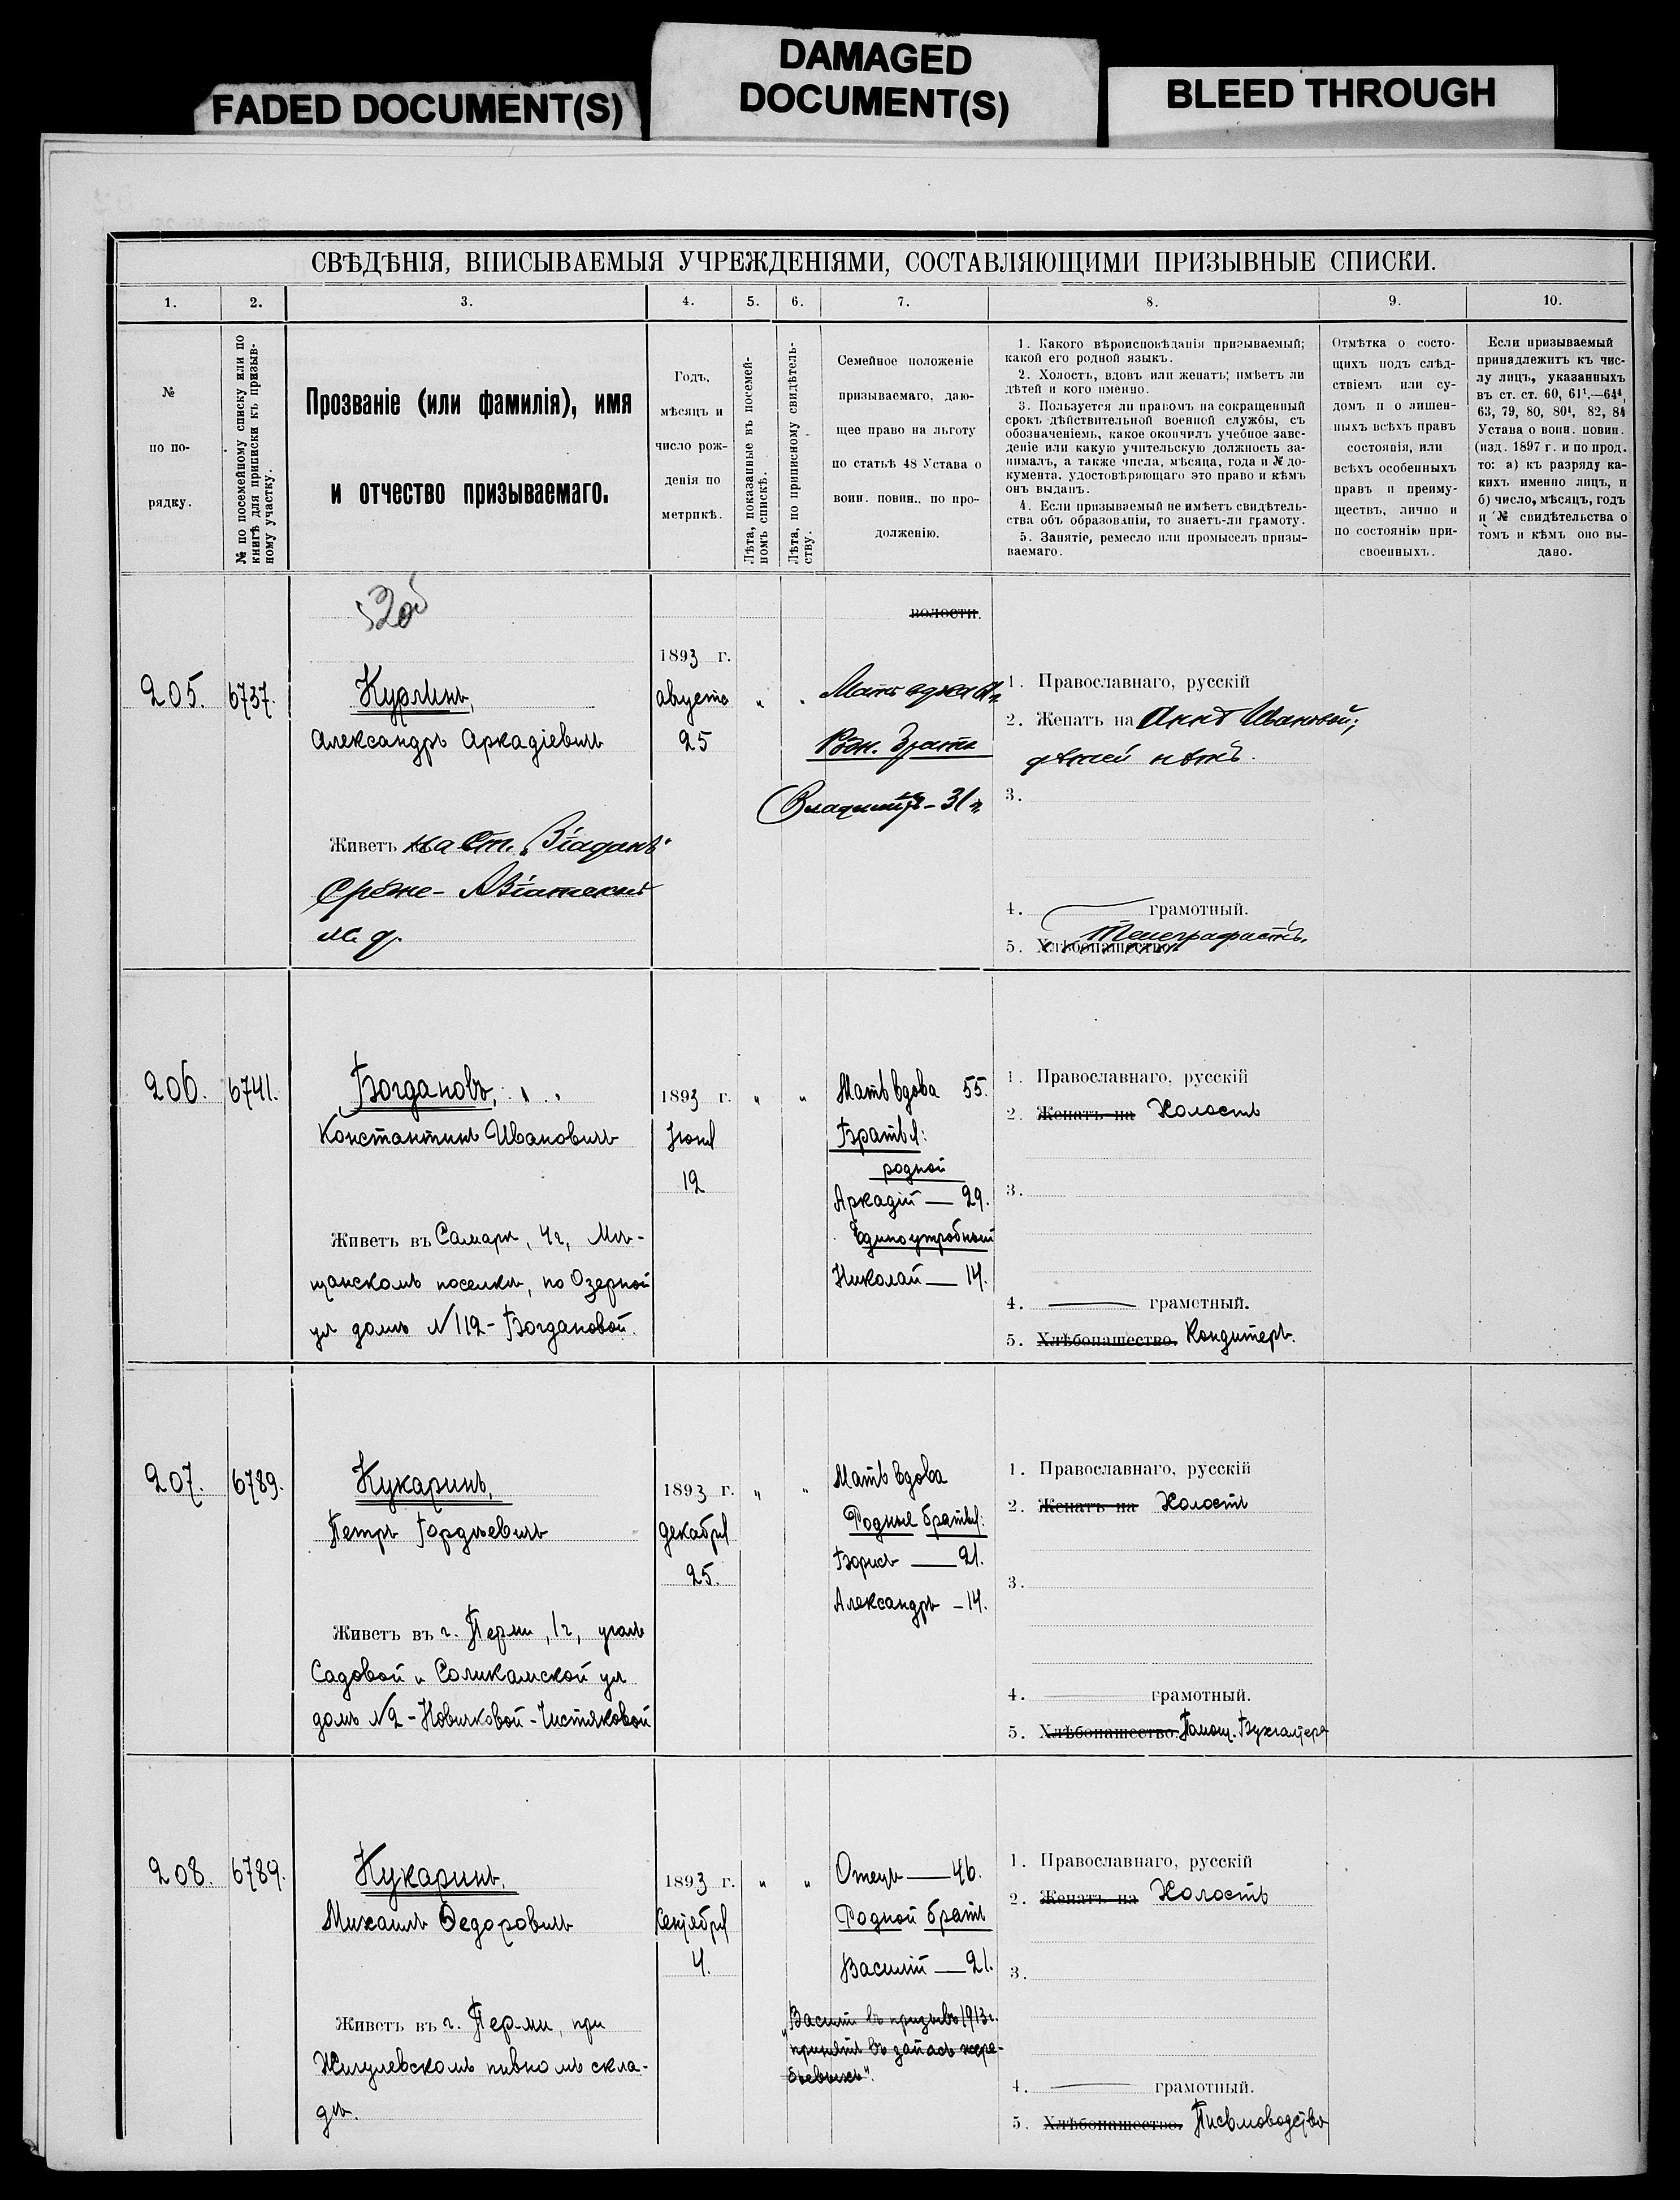 FADED DOCUMENT(S)
DAMAGED
DOCUMENT(S)
BLEED THROUGH
СВѢДѢНІЯ, ВПИСЫВАЕМЫЯ УЧРЕЖДЕНІЯМИ, СОСТАВЛЯЮЩИМИ ПРИЗЫВНЫЕ СПИСКИ.
1.
2.
3.
4.
5.
6.
7.
8.
9.
10.
№
по по-
рядку.
№ по посемейному списку или по
книгѣ для приписки къ призыв-
ному участку.
Прозваніе (или фамилія), имя
и отчество призываемаго.
Годъ,
мѣсяцъ и
число рож-
денія по
метрикѣ.
Лѣта, показанные въ посемей-
номъ спискѣ.
Лѣта, по приписному свидѣтель-
ству.
Семейное положеніе
призываемаго, даю-
щее право на льготу
по статьѣ 48 Устава о
воин. повин., по про-
долженію.
1. Какого вѣроисповѣданія призываемый;
какой его родной языкъ.
2. Холостъ, вдовъ или женатъ; имѣетъ ли
дѣтей и кого именно.
3. Пользуется ли правомъ на сокращенный
срокъ дѣйствительной военной службы, съ
обозначеніемъ, какое окончилъ учебное заве-
деніе или какую учительскую должность за-
нималъ, а также числа, мѣсяца, года и № до-
кумента, удостовѣряющаго это право и кѣмъ
онъ выданъ.
4. Если призываемый не имѣетъ свидѣтель-
ства объ образованіи, то знаетъ-ли грамоту.
5. Занятіе, ремесло или промыселъ призы-
ваемаго.
Отмѣтка о состо-
щихъ подъ слѣд-
ствіемъ или су-
домъ и о лишен-
ныхъ всѣхъ правъ
состоянія, или
всѣхъ особенныхъ
правъ и преиму-
ществъ, лично и
по состоянію при-
своенныхъ.
Если призываемый
принадлежитъ къ чис-
лу лицъ, указанныхъ
въ ст. ст. 60, 61¹.—64⁴,
63, 79, 80, 80¹, 82, 84
Устава о воин. повин.
(изд. 1897 г. и по прод.
то: а) къ разряду ка-
кихъ именно лицъ, и
б) число, мѣсяцъ, годъ
и № свидѣтельства о
томъ и кѣмъ оно вы-
дано.
волости.
205. 6737.
Курлинъ,
Александръ Аркадіевичъ
Живетъ на Ст.
Средне-Азіатской
ж. д.
1893 г.
августа
25
" "
Мать вдова
Родн. братъ
Владиміръ - 31
1. Православнаго, русскій
2. Женатъ на Аннѣ Ивановой;
дѣтей нѣтъ.
3.
4. грамотный.
5. Хлѣбопашество. Телеграфистъ.
206. 6741.
Богдановъ,
Константинъ Ивановичъ
Живетъ въ Самарѣ, 4ч, Мѣ-
щанскомъ поселкѣ, по Озерной
ул домъ №112 - Богдановой.
1893 г.
Іюня
12
" "
Мать вдова 55.
Братья:
родной
Аркадій — 29.
Единоутробный
Николай — 14.
1. Православнаго, русскій
2. Женатъ на Холостъ
3.
4. грамотный.
5. Хлѣбопашество. Кондитеръ.
207. 6789.
Кукаринъ,
Петръ Гордѣевичъ
Живетъ въ г. Перми, 1ч, уголъ
Садовой и Соликамской ул
домъ №2 - Новичковой-Чистяковой
1893 г.
декабря
25.
" "
Мать вдова
Родные братья:
Борисъ — 21.
Александръ - 14.
1. Православнаго, русскій
2. Женатъ на Холостъ
3.
4. грамотный.
5. Хлѣбопашество. Помощ. Бухгалтера
208. 6789.
Кукаринъ.
Михаилъ Ѳедоровичъ
Живетъ въ г. Перми, при
Жигулевскомъ пивномъ скла-
дѣ.
1893 г.
Сентября
4.
" "
Отецъ — 46.
Родной братъ
Василій — 21.
"Василій въ призывъ 1913г.
принятъ въ запасъ жере-
бьевыхъ".
1. Православнаго, русскій
2. Женатъ на Холостъ
3.
4. грамотный.
5. Хлѣбопашество. Письмоводство